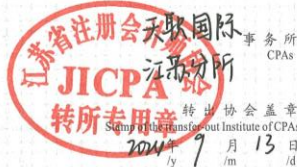 江苏省注册会计师协会
JICPA
转所专用章
天职国际 事务所
CPAs
江苏分所
转出协会盖章
Stamp of the transfer-out Institute of CPAs
2024年 9月 13日
/y /m /d